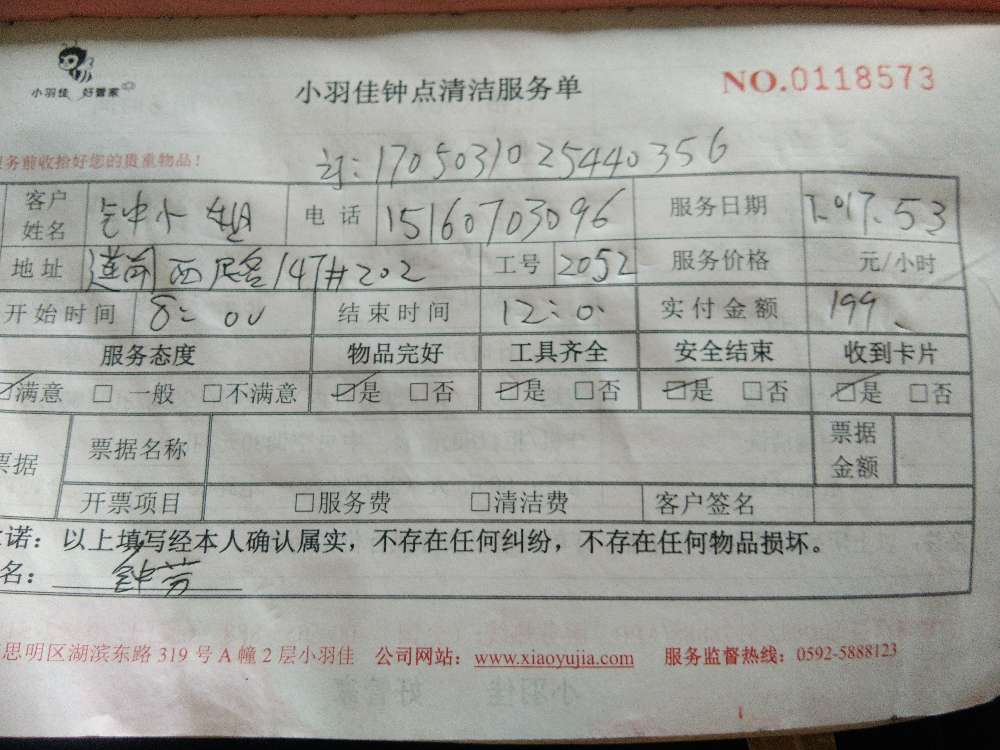 小羽佳 好管家
小羽佳钟点清洁服务单
NO.0118573
服务前收拾好您的贵重物品!
订:1705031025440356
客户姓名 钟小姐 电话 15160703096 服务日期 2017.5.3
地址 莲前西路147#202 工号 2052 服务价格 元/小时
开始时间 8:00 结束时间 12:0 实付金额 199
服务态度 物品完好 工具齐全 安全结束 收到卡片
☑满意 □一般 □不满意 ☑是 □否 ☑是 □否 ☑是 □否 ☑是 □否
票据 票据名称 票据金额
开票项目 □服务费 □清洁费 客户签名
诺:以上填写经本人确认属实,不存在任何纠纷,不存在任何物品损坏。
名:钟芳
思明区湖滨东路319号A幢2层小羽佳 公司网站:www.xiaoyujia.com 服务监督热线:0592-5888123